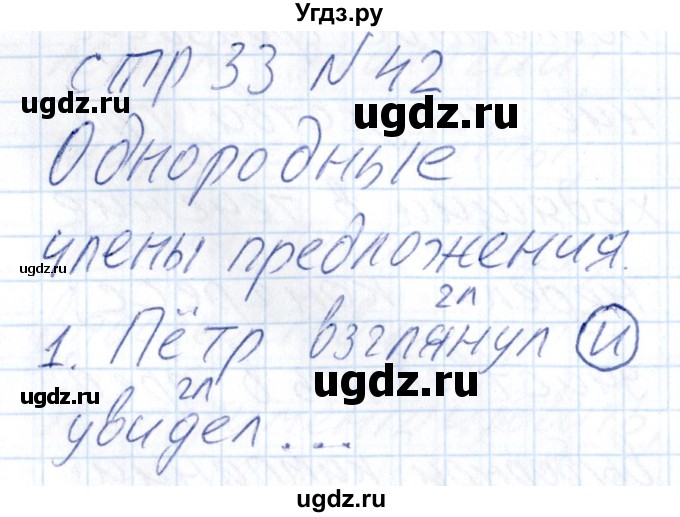 Угдз.ру
стр 33 №42
Однородные
члены предложения.
гл
1. Пётр взглянул и
гл
увидел...
ugdz.ru
ugdz.ru
ugdz.ru
ugdz.ru
ugdz.ru
ugdz.ru
ugdz.ru
ugdz.ru